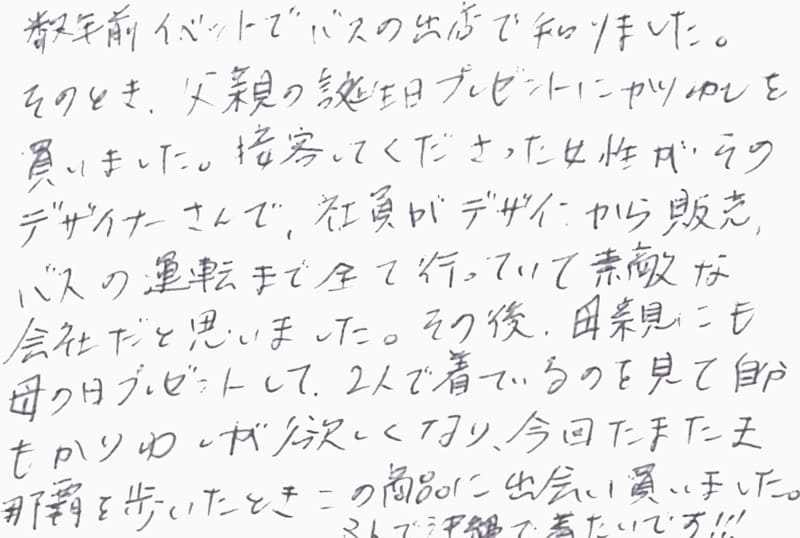 数年前イベントでバスの出店で知りました。
そのとき、父親の誕生日プレゼントにかりゆしを
買いました。接客してくださった女性がその
デザイナーさんで、社員がデザインから販売、
バスの運転まで全て行っていて素敵な
会社だと思いました。その後、母親にも
母の日プレゼントして、2人で着ているのを見て自分
もかりゆしが欲しくなり、今回たまたま
那覇を歩いたときこの商品に出会い買いました。
3人で沖縄で着たいです!!!